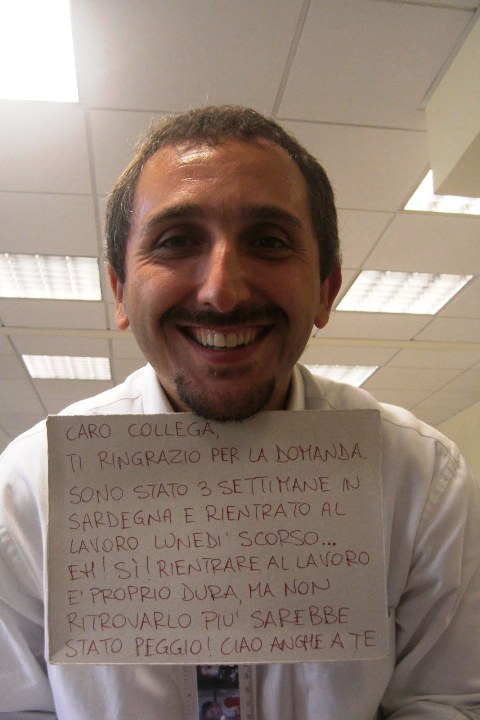 CARO COLLEGA,
TI RINGRAZIO PER LA DOMANDA.
SONO STATO 3 SETTIMANE IN
SARDEGNA E RIENTRATO AL
LAVORO LUNEDI' SCORSO...
EH! SÌ! RIENTRARE AL LAVORO
E' PROPRIO DURA, MA NON
RITROVARLO PIU' SAREBBE
STATO PEGGIO! CIAO ANCHE A TE